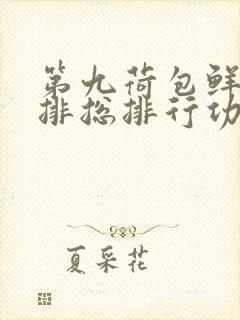 第九荷包鲜
排总排行功
夏采花